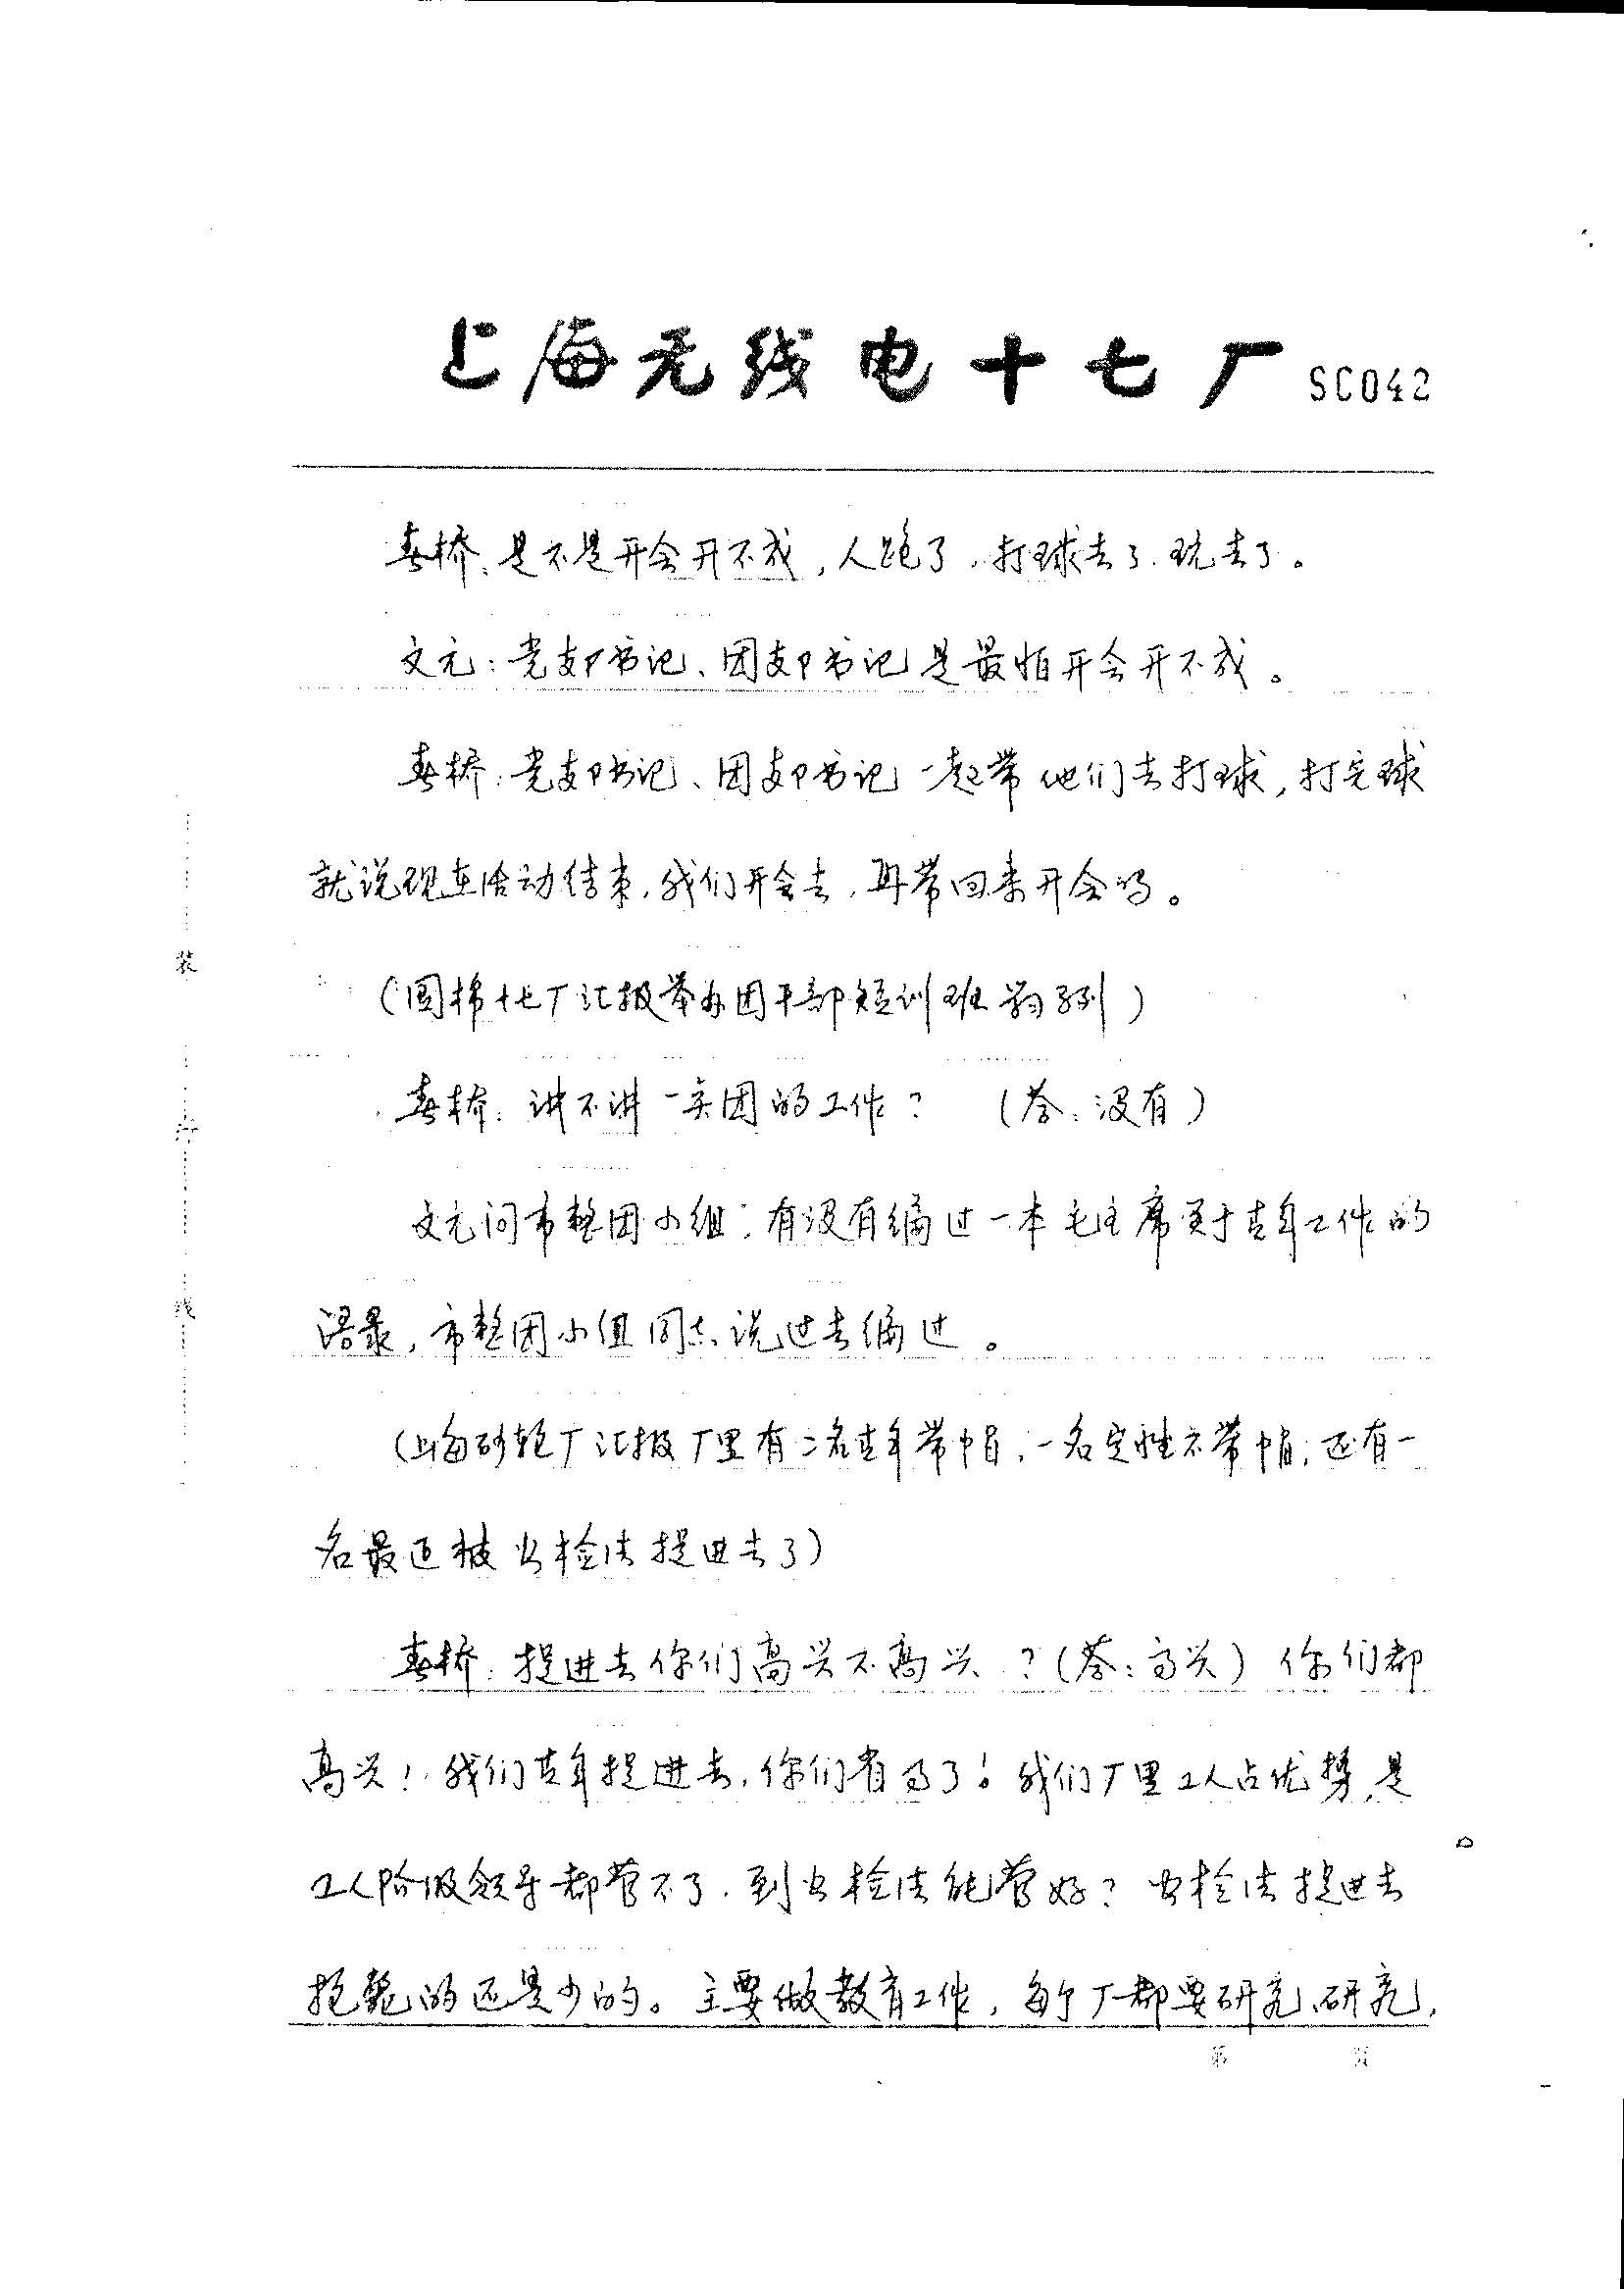 上海无线电十七厂 SC042
春桥:是不是开会开不成,人跑了,打球去了.玩去了。
文元:党支部书记、团支部书记是最怕开会开不成。
春桥:党支部书记、团支部书记一起带他们去打球,打完球
就说现在活动结束,我们开会去,再带回来开会吗。
(国棉十七厂汇报举办团干部短训班 时)
春桥:讲不讲一些团的工作? (答:没有)
文元问市整团小组:有没有编过一本毛主席关于青年工作的
语录,市整团小组同志说过去编过。
(上海砂轮厂汇报厂里有二名青年带帽,一名定性不带帽;还有一
名最近被公检法捉进去了)
春桥:捉进去你们高兴不高兴?(答:高兴)你们都
高兴!我们青年捉进去,你们省力了!我们厂里工人占优势,是
工人阶级领导都管不了.到公检法能管好?公检法捉进去
挽救的还是少的。主要做教育工作,每个厂都要研究研究,
装
订
线
第 页